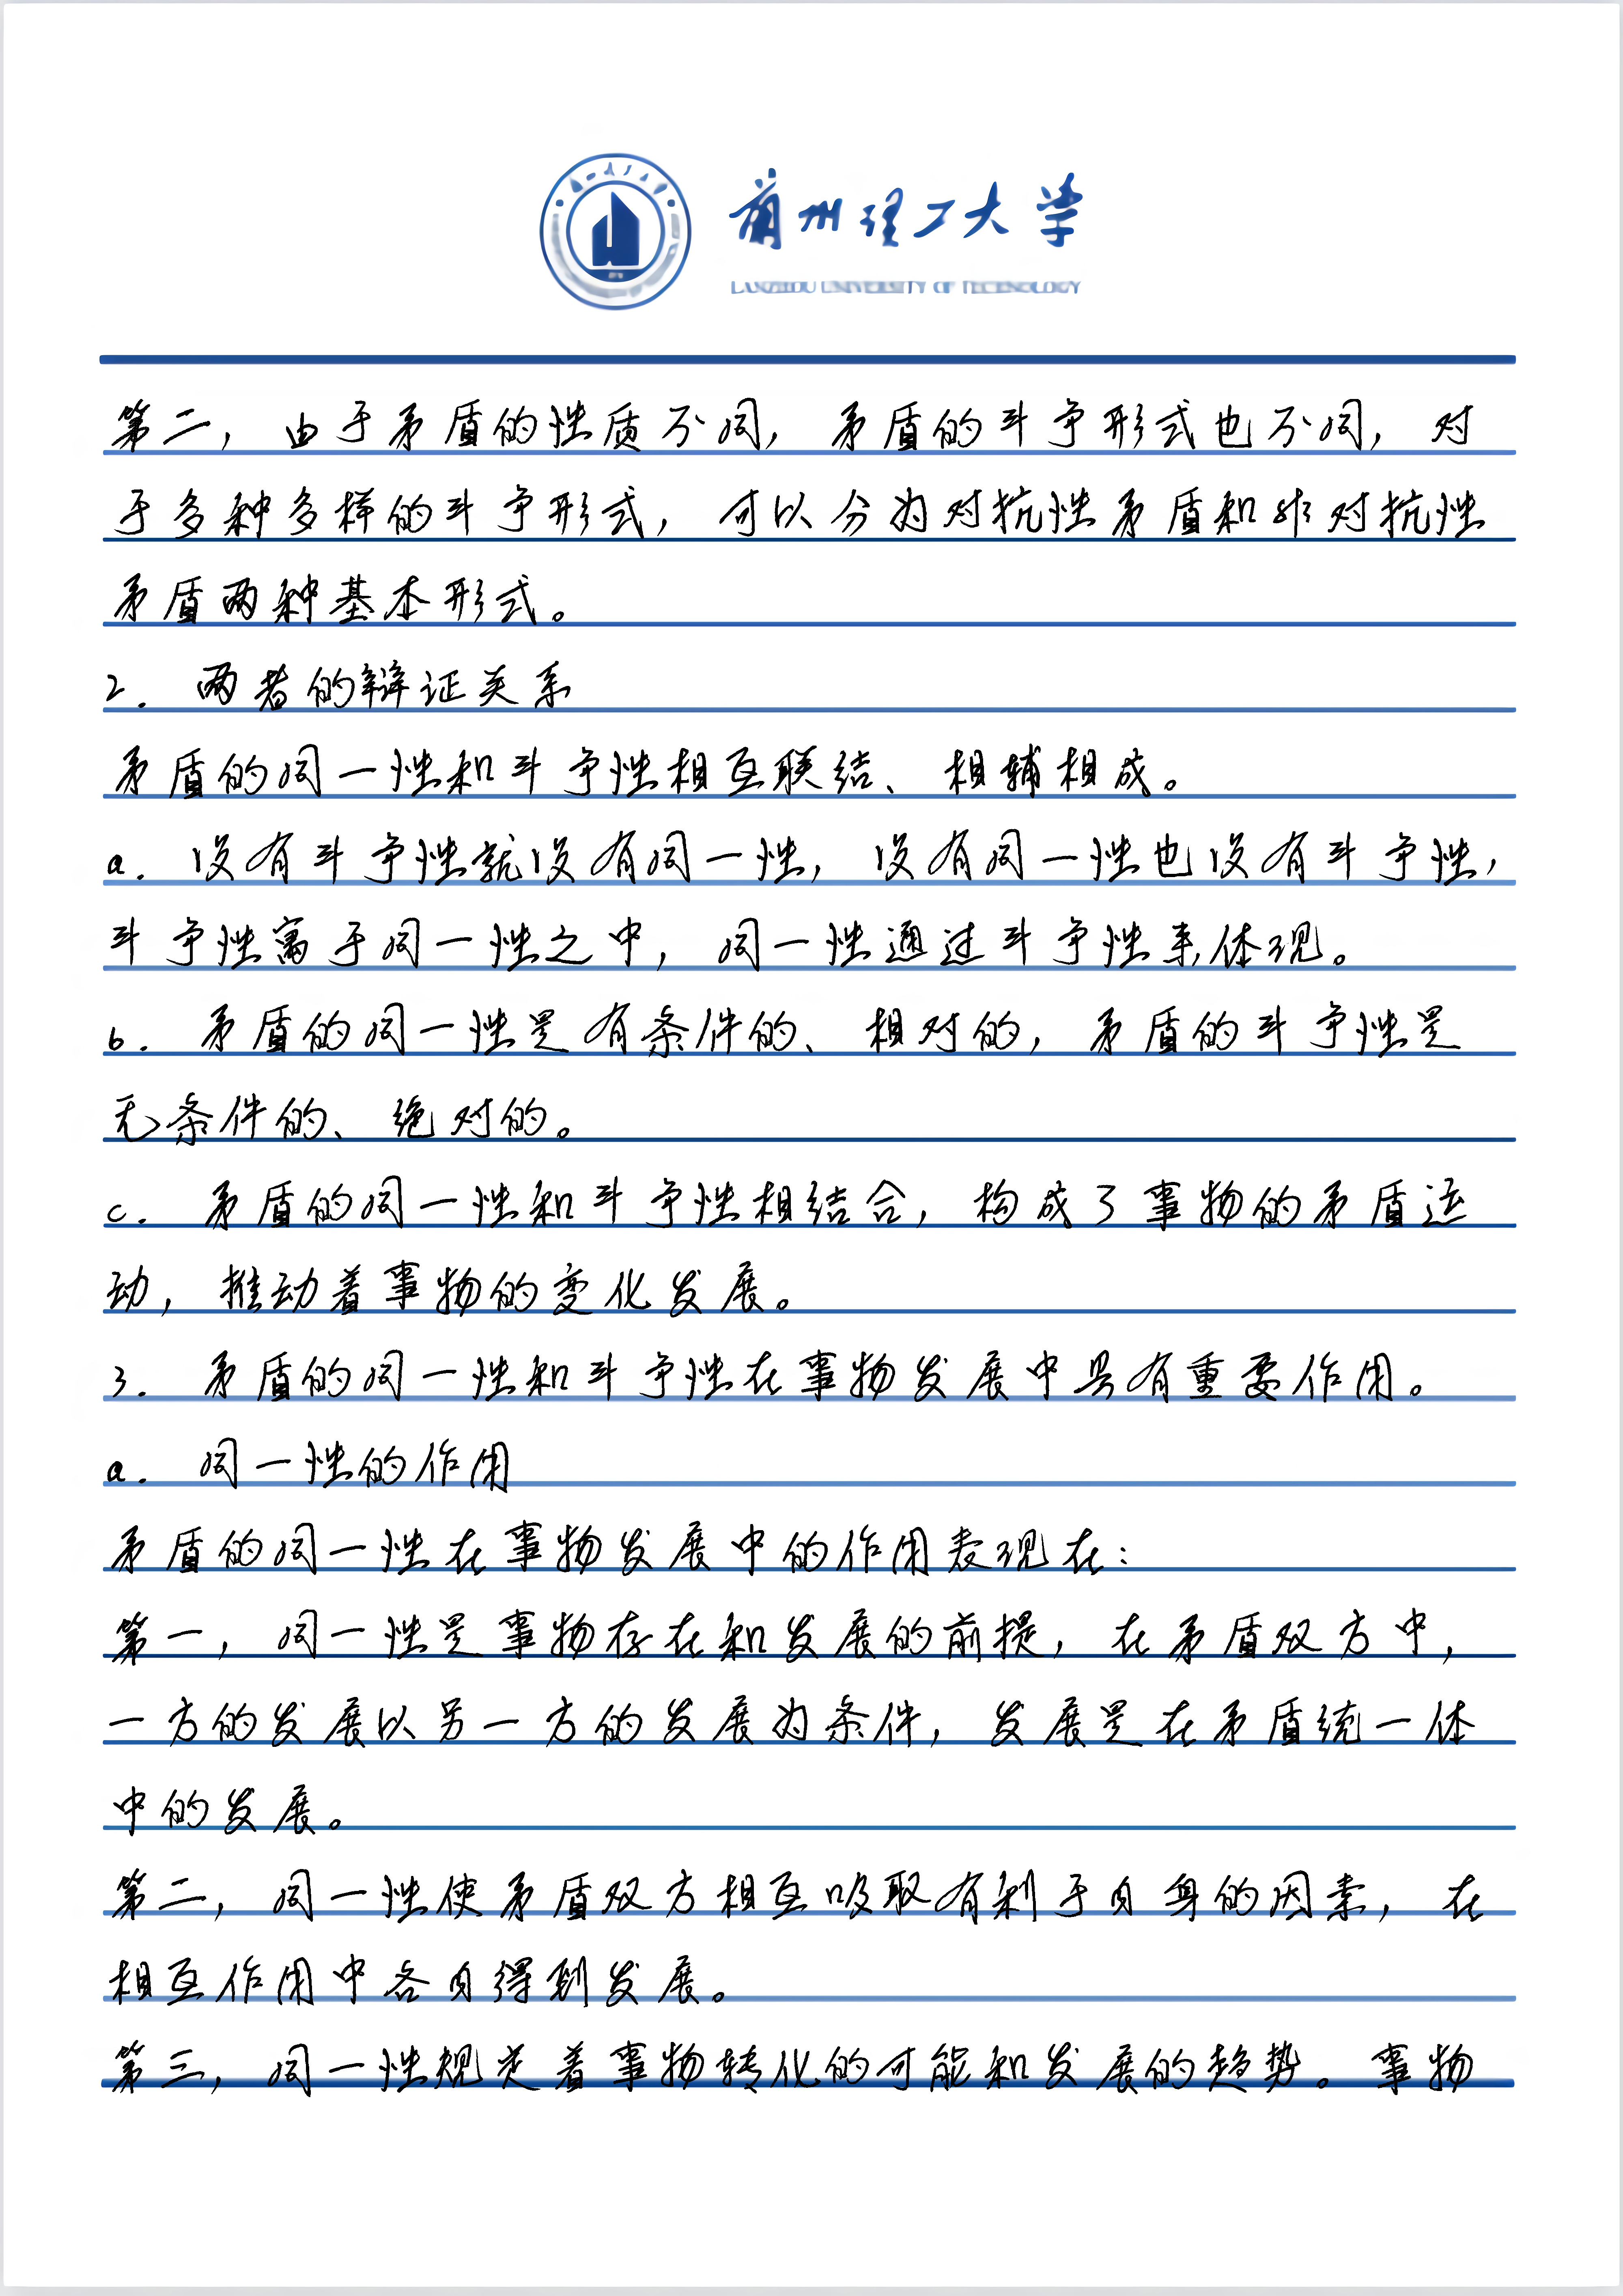 兰州理工大学
LANZHOU UNIVERSITY OF TECHNOLOGY
第二，由于矛盾的性质不同，矛盾的斗争形式也不同，对
于多种多样的斗争形式，可以分为对抗性矛盾和非对抗性
矛盾两种基本形式。
2. 两者的辩证关系
矛盾的同一性和斗争性相互联结、相辅相成。
a. 没有斗争性就没有同一性，没有同一性也没有斗争性，
斗争性寓于同一性之中，同一性通过斗争性来体现。
b. 矛盾的同一性是有条件的、相对的，矛盾的斗争性是
无条件的、绝对的。
c. 矛盾的同一性和斗争性相结合，构成了事物的矛盾运
动，推动着事物的变化发展。
3. 矛盾的同一性和斗争性在事物发展中具有重要作用。
a. 同一性的作用
矛盾的同一性在事物发展中的作用表现在：
第一，同一性是事物存在和发展的前提，在矛盾双方中，
一方的发展以另一方的发展为条件，发展是在矛盾统一体
中的发展。
第二，同一性使矛盾双方相互吸取有利于自身的因素，在
相互作用中各自得到发展。
第三，同一性规定着事物转化的可能和发展的趋势。事物